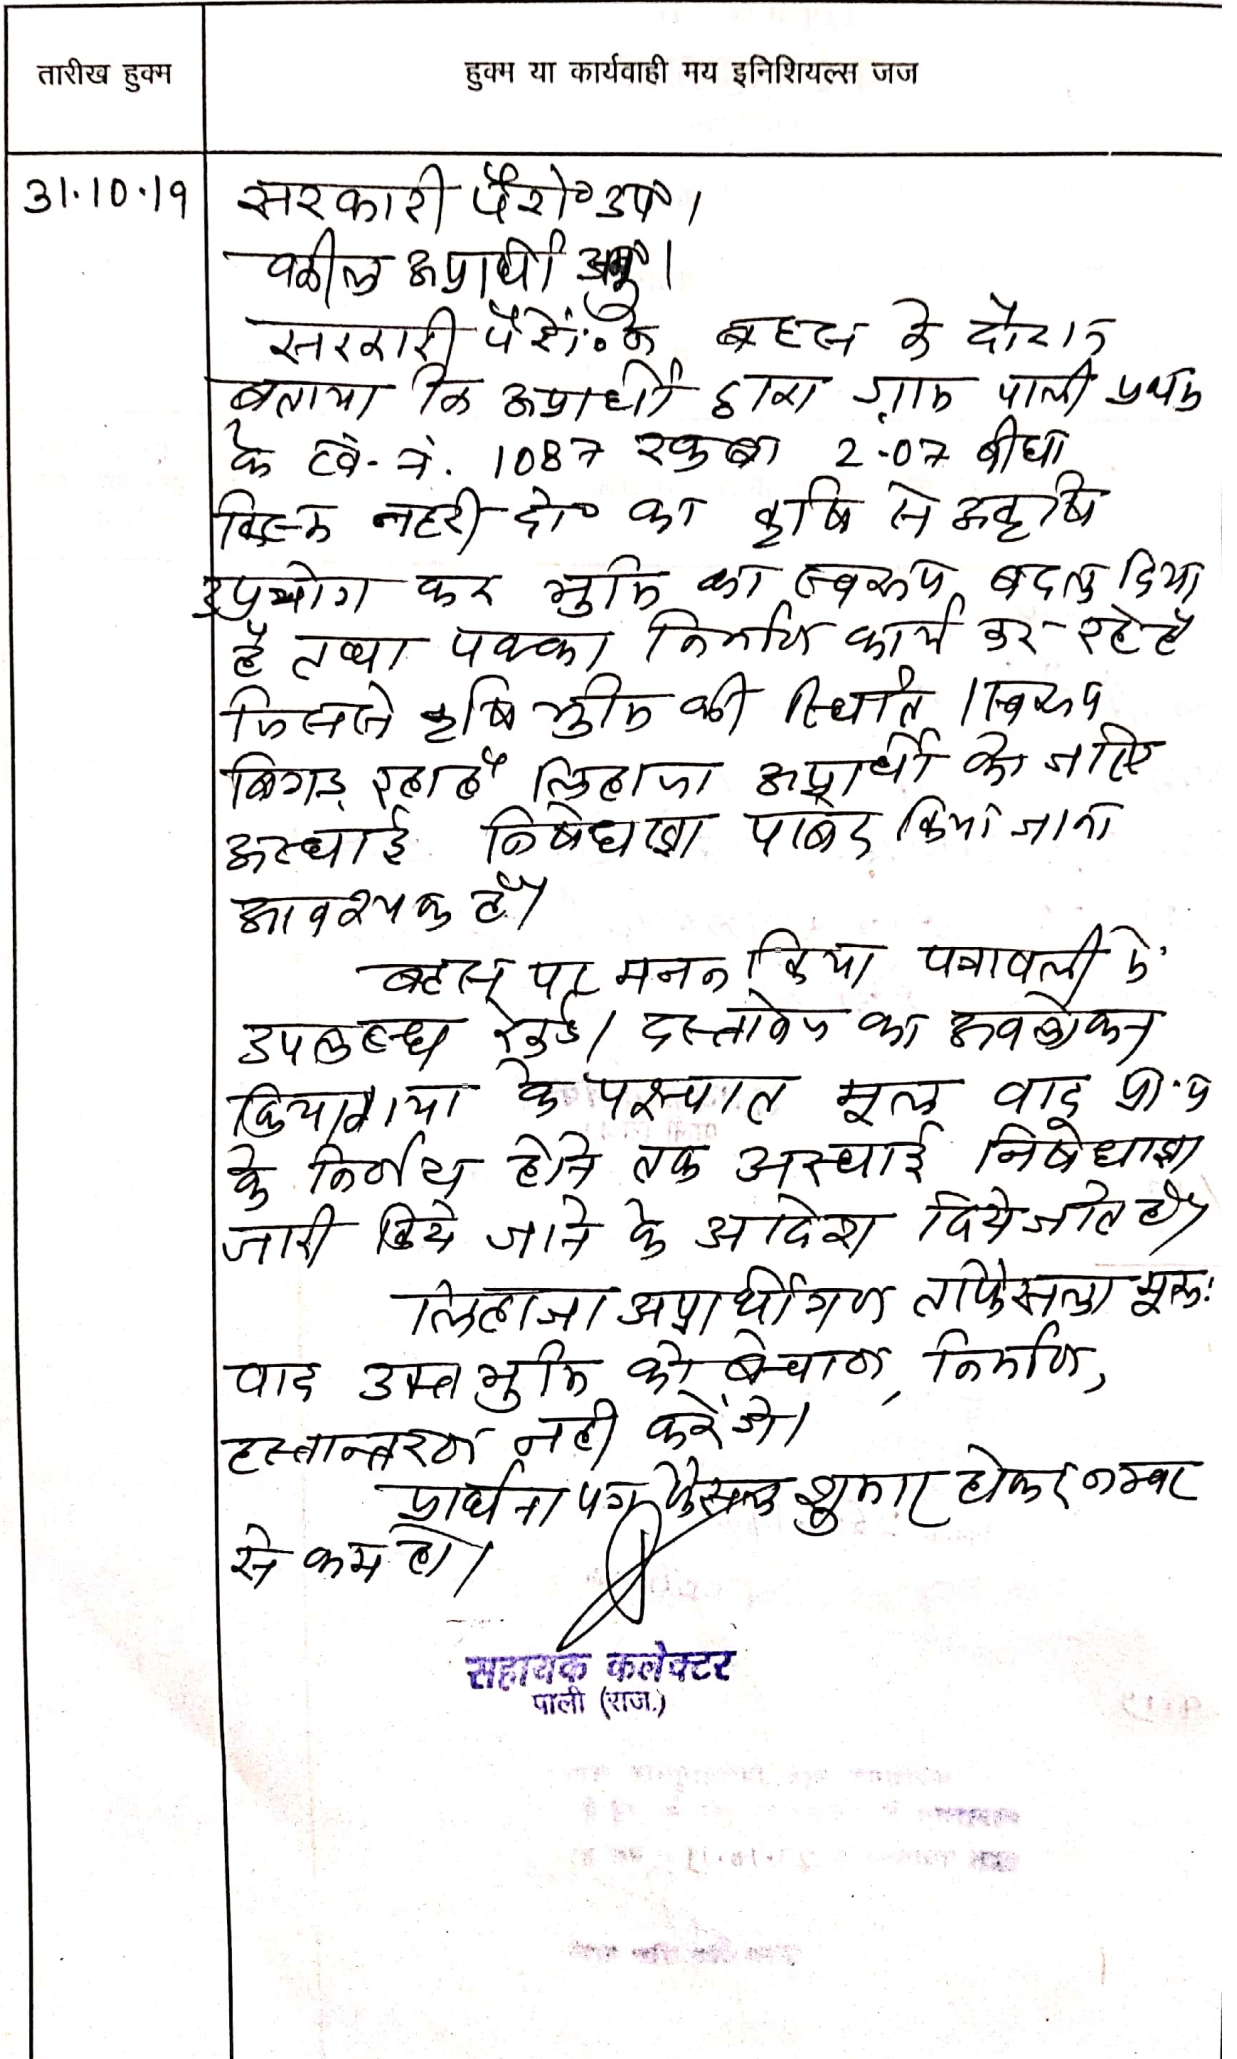 तारीख हुक्म
हुक्म या कार्यवाही मय इनिशियल्स जज
31.10.19
सरकारी पैरो॰ उप॰।
वकील अप्रार्थी अनु॰।
सरकारी पैरो॰ के बहस के दौरान
बताया कि अप्रार्थी द्वारा ग्राम पाली प्रथम
के ख.नं. 1087 रकुबा 2-07 बीघा
किस्म नहरी दो॰ का कृषि से अकृषि
उपयोग कर भुमि का स्वरूप बदल दिया
है तथा पक्का निर्माण कार्य कर रहे है
जिससे कृषि भुमि की स्थिति/स्वरूप
बिगड़ रहा है लिहाजा अप्रार्थी को जरिए
अस्थाई निषेधाज्ञा पाबंद किया जाना
आवश्यक है।
बहस पर मनन किया पत्रावली मे
उपलब्ध रेकर्ड/दस्तावेज का अवलोकन
किया गया के पश्चात मूल वाद प्रा.प
के निर्णय होने तक अस्थाई निषेधाज्ञा
जारी किये जाने के आदेश दिये जाते है।
लिहाजा अप्रार्थीगण ताफैसला मूल
वाद उक्त भुमि को बेचाण, निर्माण,
हस्तान्तरण नही करेंगे।
प्रार्थना पत्र फैसल शुमार होकर नम्बर
से कम हो।
सहायक कलेक्टर
पाली (राज.)